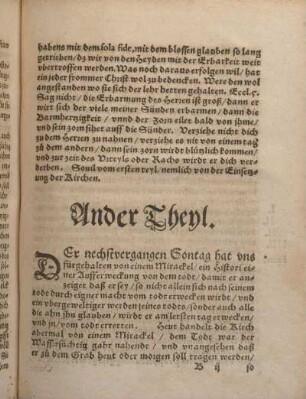 habens mit dem sola fide, mit dem blossen glauben so lang
getriben / dz wir von den Heyden mit der Erbarkeit weit
vbertroffen werden. Was noch darauß erfolgen will / hat
ein jeder frommer Christ wol zu bedencken. Were den wol
angestanden wo sie sich der lehr herren gehalten. Eccl. 5.
Sag nicht / die Erbarmung des Herren ist groß / dann er
wirt sich der viele meiner Sünden erbarmen / dann die
Barmhertzigkeit / vnnd der Zorn eilet bald von ihme /
vnd sein zorn sihet auff die Sünder. Verziehe nicht dich
zu dem Herren zu nahnen / verziehe es nit von einem tag
zu dem andern / dann sein zorn wirdt blünlich kommen /
vnd zur zeit des Vrteyls oder Rachs wirdt er dich ver-
derben. Souil vom ersten teyl / nemlich von der Einsetz-
ung der Kirchen.
Ander Theyl.
DEr nechstvergangen Sontag hat vns
fürgehalten von einem Mirackel / ein Histori ei-
ner Aufferweckung von dem tode / damit er an-
zeiget daß er sey / so nicht allein sich nach seinem
tode durch eigner macht vom tode erwecken wirdt / vnd
ein vbergeweltiger werden zeines todes / sonder auch alle
die an ihn glauben / wirdt er am letsten tag erwecken /
vnd in / vom tode erretten. Heut handelt die Kirch
abermal von einem Mirackel / dem Todt war der
Wassersüchtig gahr nahendt / vnd vnangesehen daß
er zu dem Grab heut oder moigen soll tragen werden /
B ij so